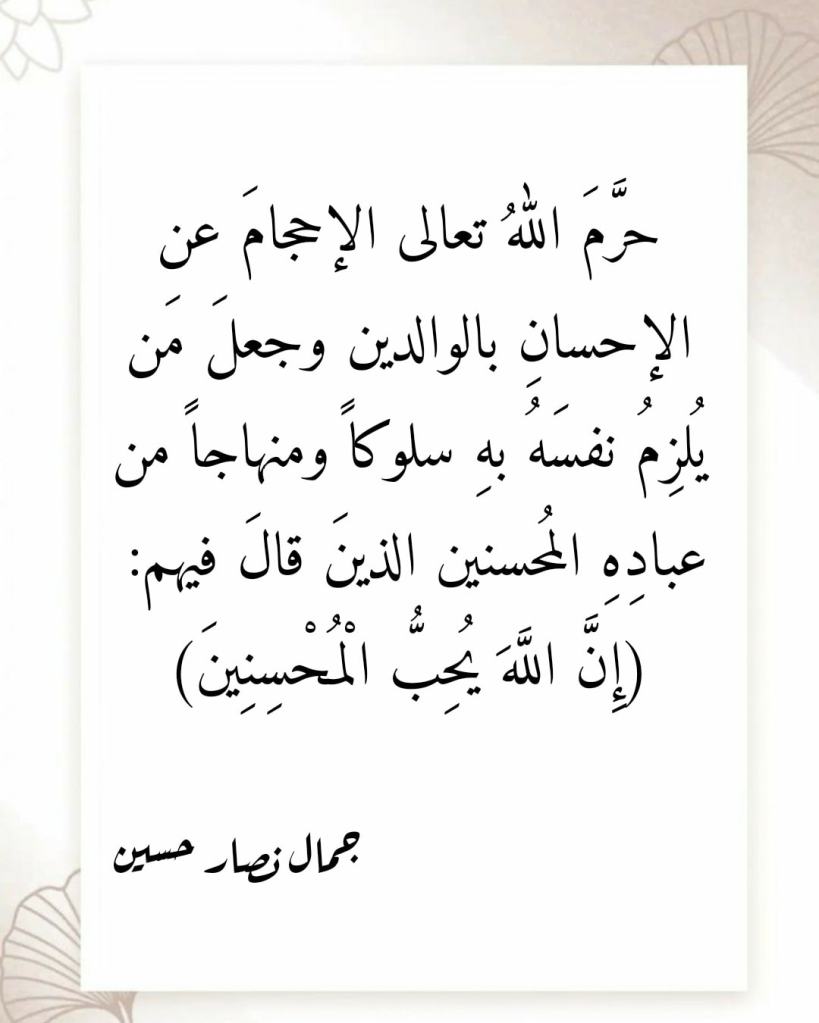 حرَّمَ اللهُ تعالى الإحجامَ عن
الإحسانِ بالوالدين وجعلَ مَن
يُلزِمُ نفسَهُ بهِ سلوكاً ومنهاجاً من
عبادِهِ المُحسنين الذينَ قالَ فيهم:
(إِنَّ اللَّهَ يُحِبُّ الْمُحْسِنِينَ)
جمال نصار حسين